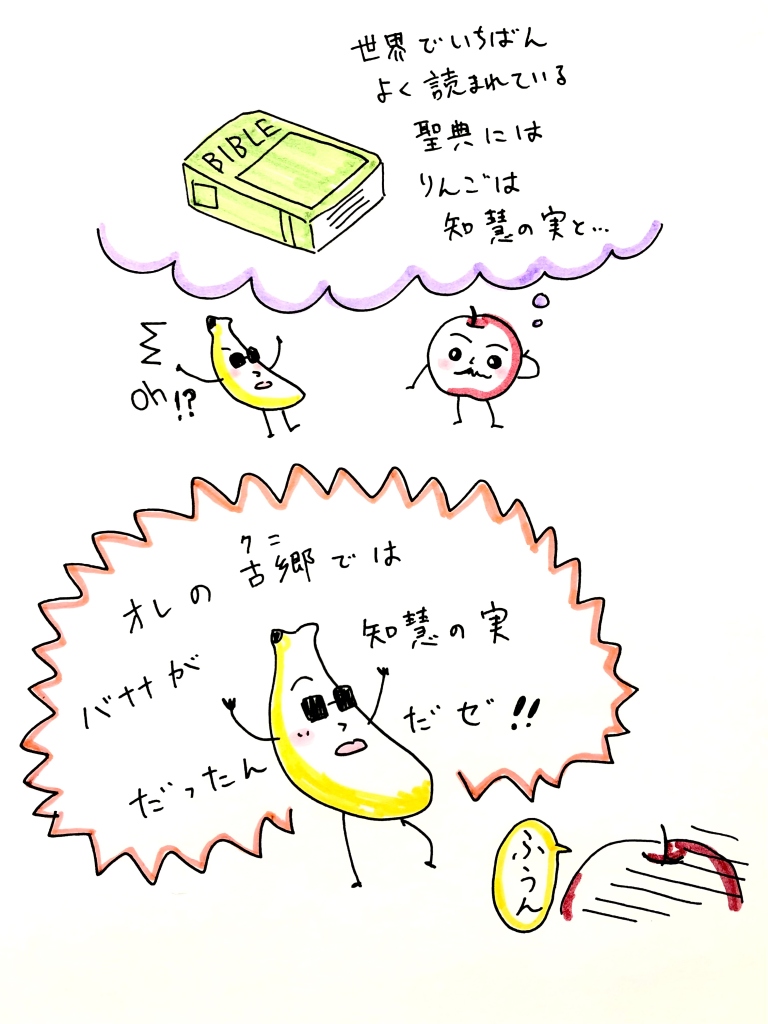 世界でいちばん
よく読まれている
聖典には
りんごは
知慧の実と…
BIBLE
Oh!?
クニ
オレの古郷では
バナナが
知慧の実
だったん
だゼ!!
ふうん